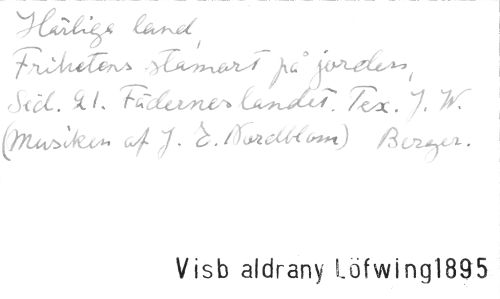 Härliga land,
Frihetens stamort på jorden,
Sid. 21. Fäderneslandet. Tex. J. W.
(Musiken af J. E. Nordblom) Berger.
Visb aldrany Löfwing1895